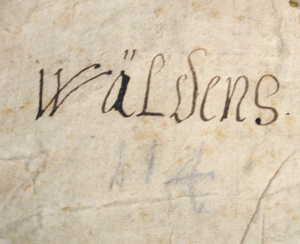 Wäldens.
114